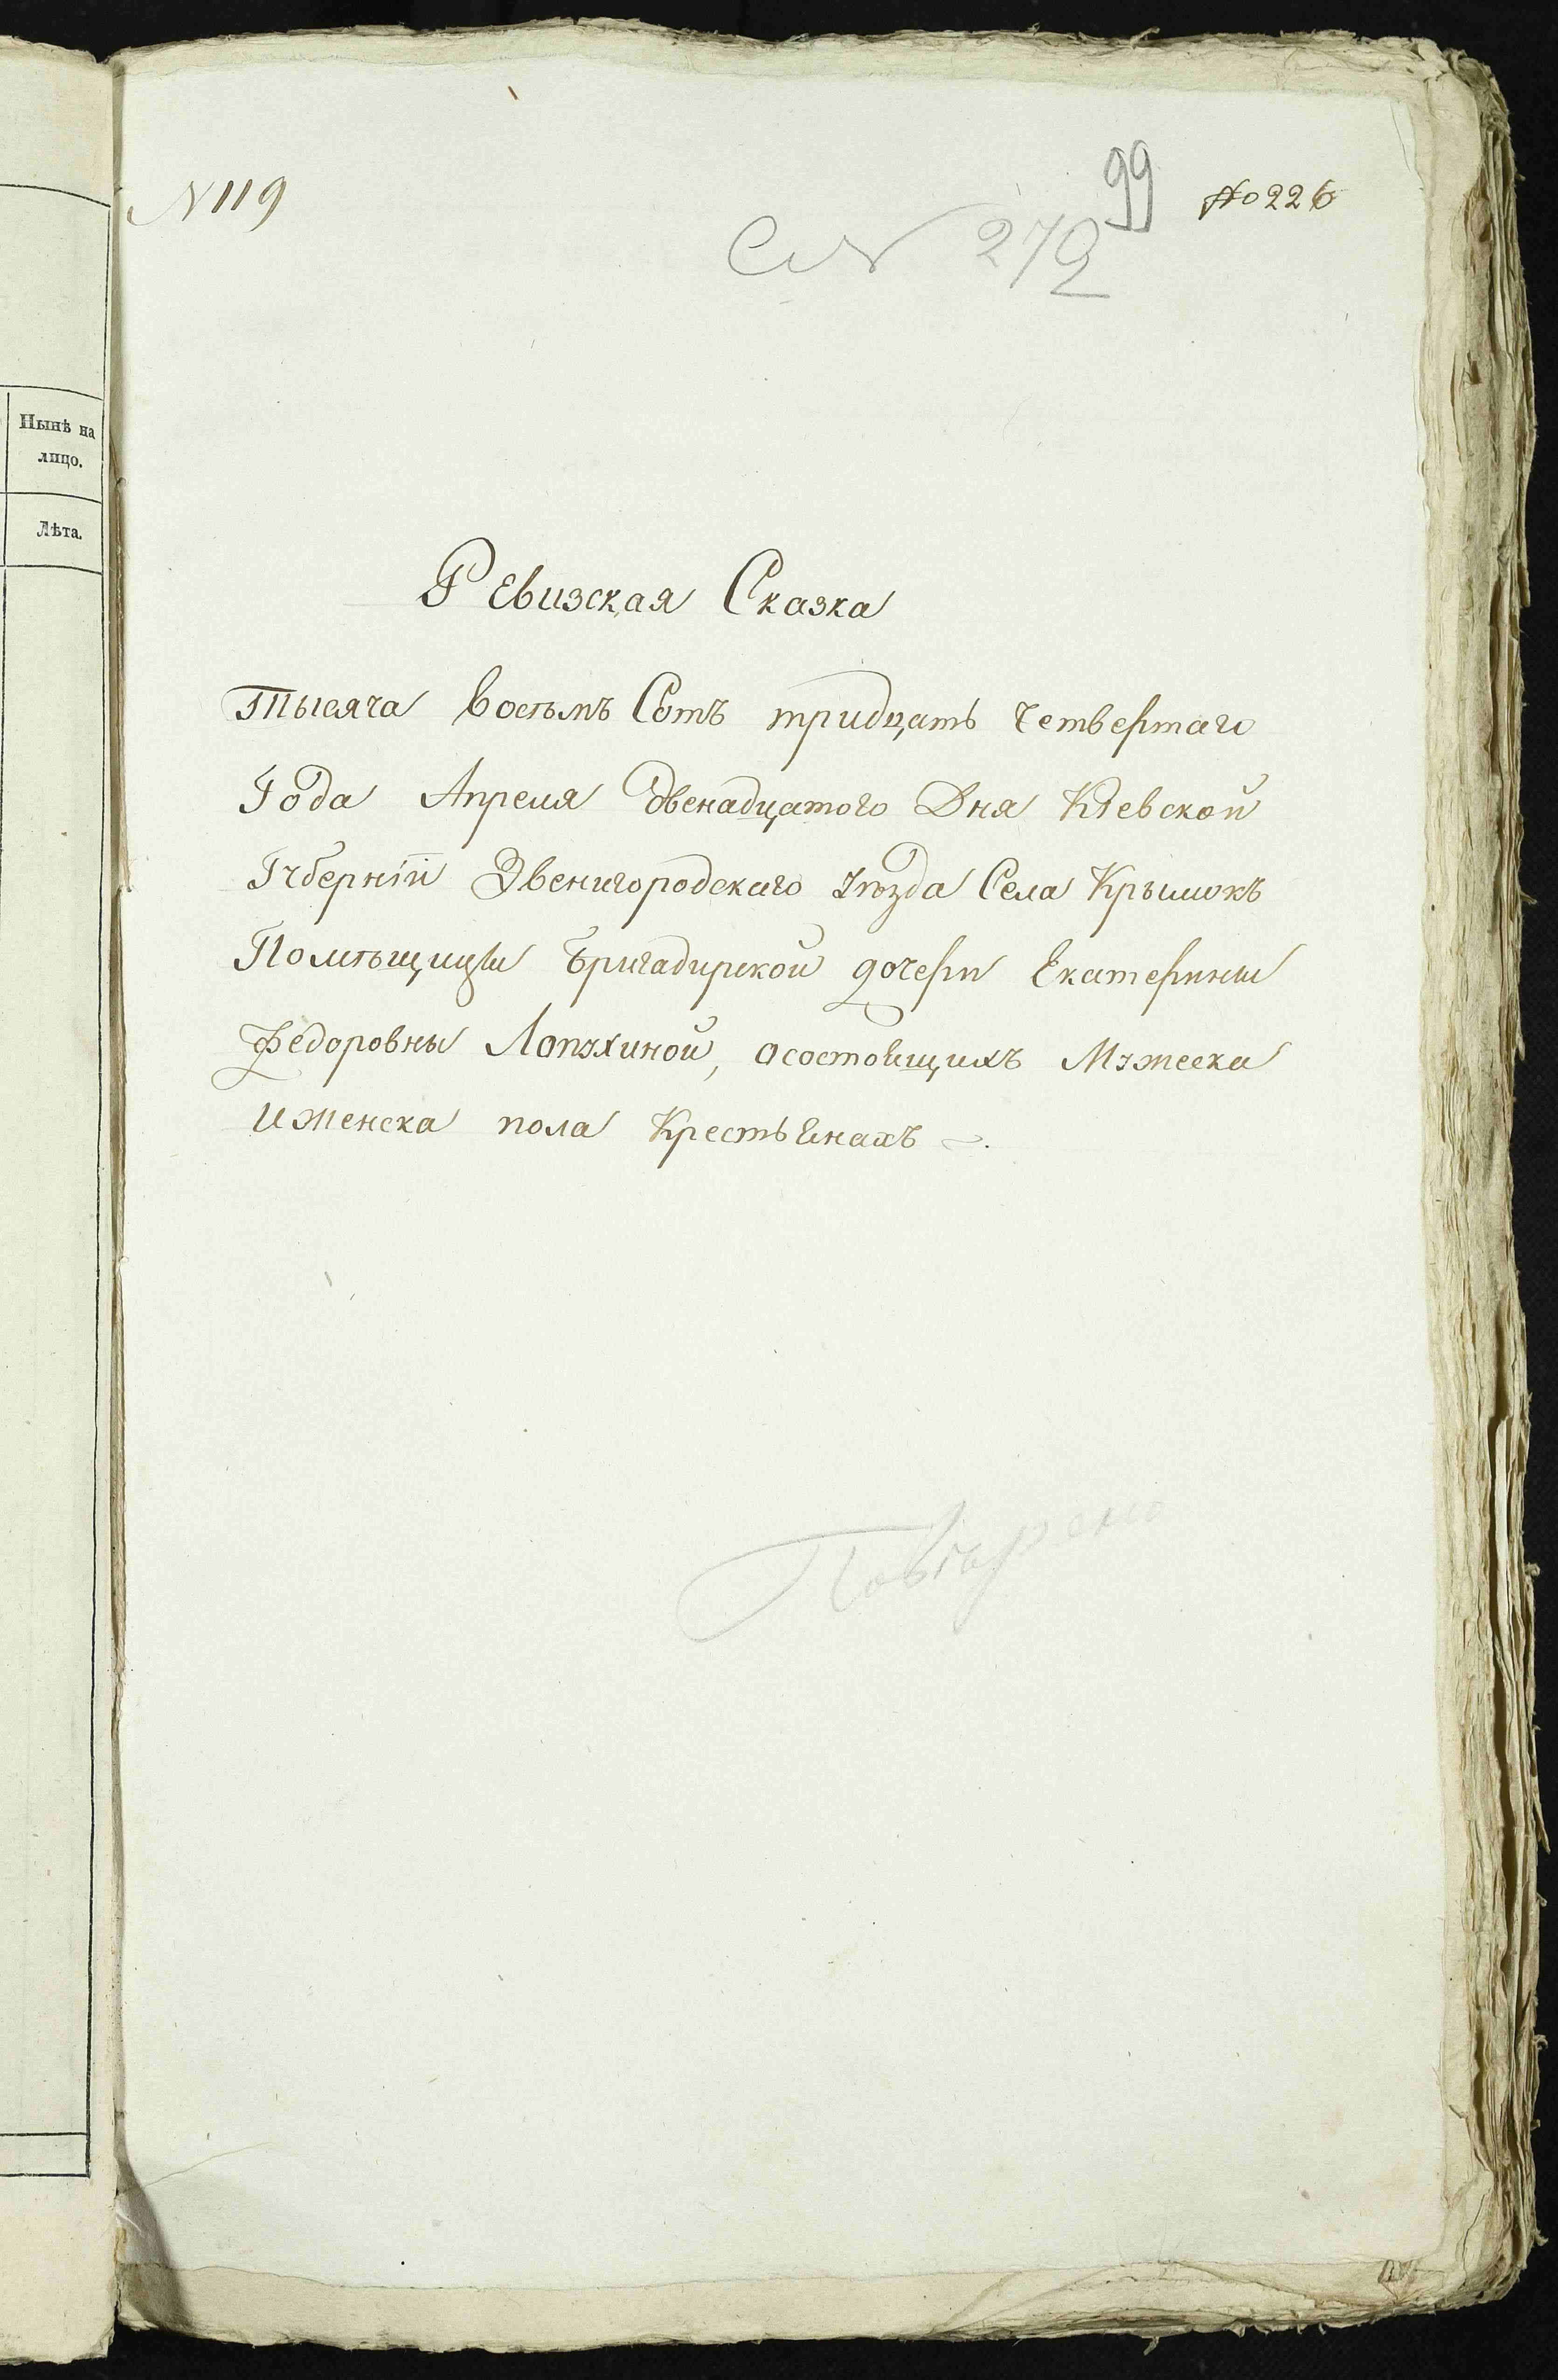 Нынѣ на
лицо.
Лѣта.
N 119
99
№ 226
N 272
Ревизская Сказка
Тысяча восѣмъ Сотъ тридцать четвертаго
Года Апреля двенадцатого Дня Кіевской
Губерніи Звенигородскаго уѣзда Села Крымокъ
Помѣщицы Бригадирской дочери Екатерины
Федоровны Лопухиной, осостоящихъ Мужеска
иженска пола Крестьянахъ
Повѣрено